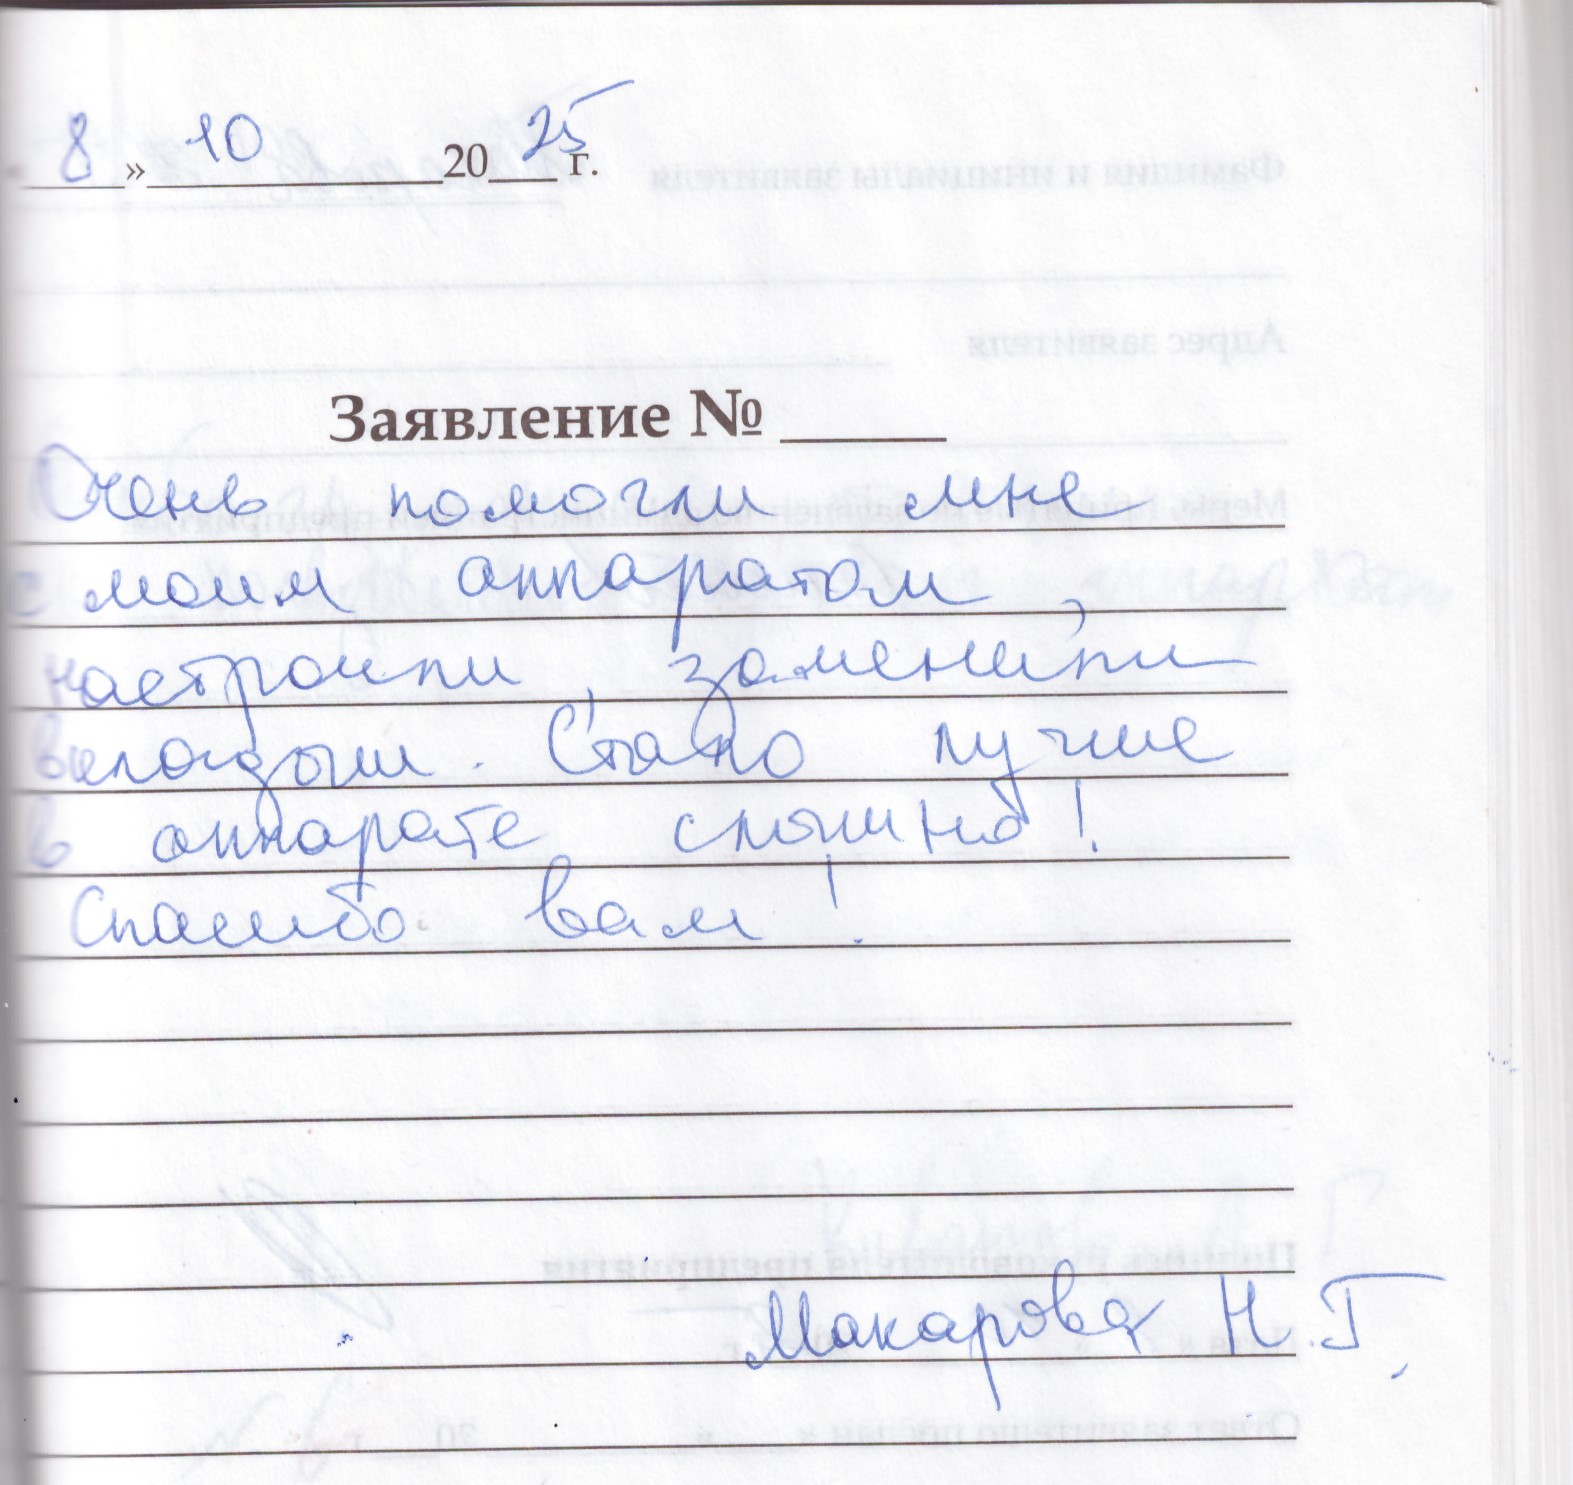 8 » 10 20 25 г.
Заявление № ____
Очень помогли мне
с моим аппаратом,
настроили, заменили
вкладыш. Стало лучше
в аппарате слышно!
Спасибо вам!
Макарова Н.Г.